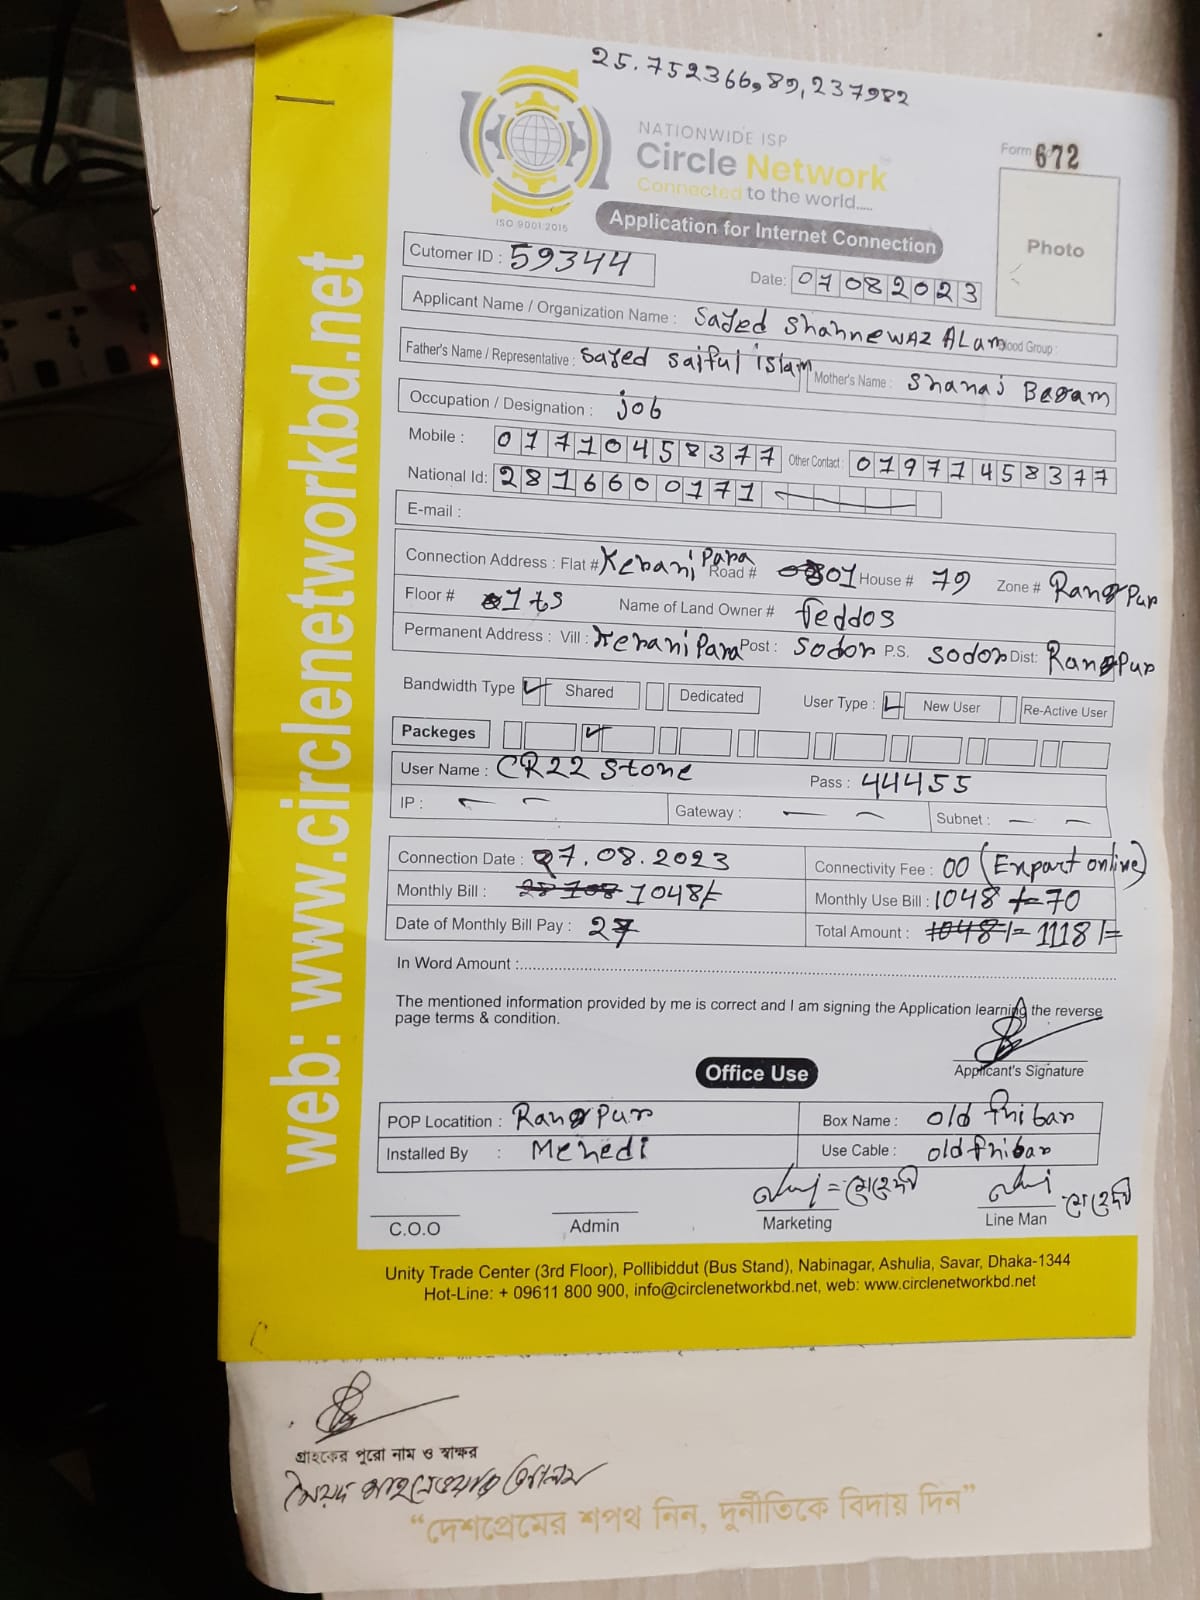 25.752366,89,237982
NATIONWIDE ISP
Circle Network
Connected to the world.....
ISO 9001:2015
Form 672
Photo
Application for Internet Connection
Cutomer ID : 59344
Date: 07082023
Applicant Name / Organization Name : Sajed Shahnewaz Alam Blood Group :
Father's Name / Representative : Sajed Saiful islam Mother's Name : Shanaj Begam
Occupation / Designation : job
Mobile : 01710458377 Other Contact : 01971458377
National Id: 2816600171
E-mail :
Connection Address : Flat # Kerani Para Road # 01 House # 79 Zone # Rangpur
Floor # 1ts Name of Land Owner # feddos
Permanent Address : Vill : Kerani Para Post : Sodor P.S. Sodor Dist: Rangpur
Bandwidth Type Shared Dedicated User Type : New User Re-Active User
Packeges
User Name : CR22 Stone Pass : 44455
IP : Gateway : Subnet :
Connection Date : 27.08.2023 Connectivity Fee : 00 (Enpart online)
Monthly Bill : 1048/- Monthly Use Bill : 1048 +70
Date of Monthly Bill Pay : 27 Total Amount : 1048/= 1118/=
In Word Amount :
The mentioned information provided by me is correct and I am signing the Application learning the reverse
page terms & condition.
Applicant's Signature
Office Use
POP Locatition : Rangpur Box Name : old fhibar
Installed By : Mehedi Use Cable : old fhibar
মেহেদী মেহেদী
C.O.O Admin Marketing Line Man
Unity Trade Center (3rd Floor), Pollibiddut (Bus Stand), Nabinagar, Ashulia, Savar, Dhaka-1344
Hot-Line: + 09611 800 900, info@circlenetworkbd.net, web: www.circlenetworkbd.net
web: www.circlenetworkbd.net
গ্রাহকের পুরো নাম ও স্বাক্ষর
সৈয়দ শাহনেওয়াজ আলম
“দেশপ্রেমের শপথ নিন, দুর্নীতিকে বিদায় দিন”